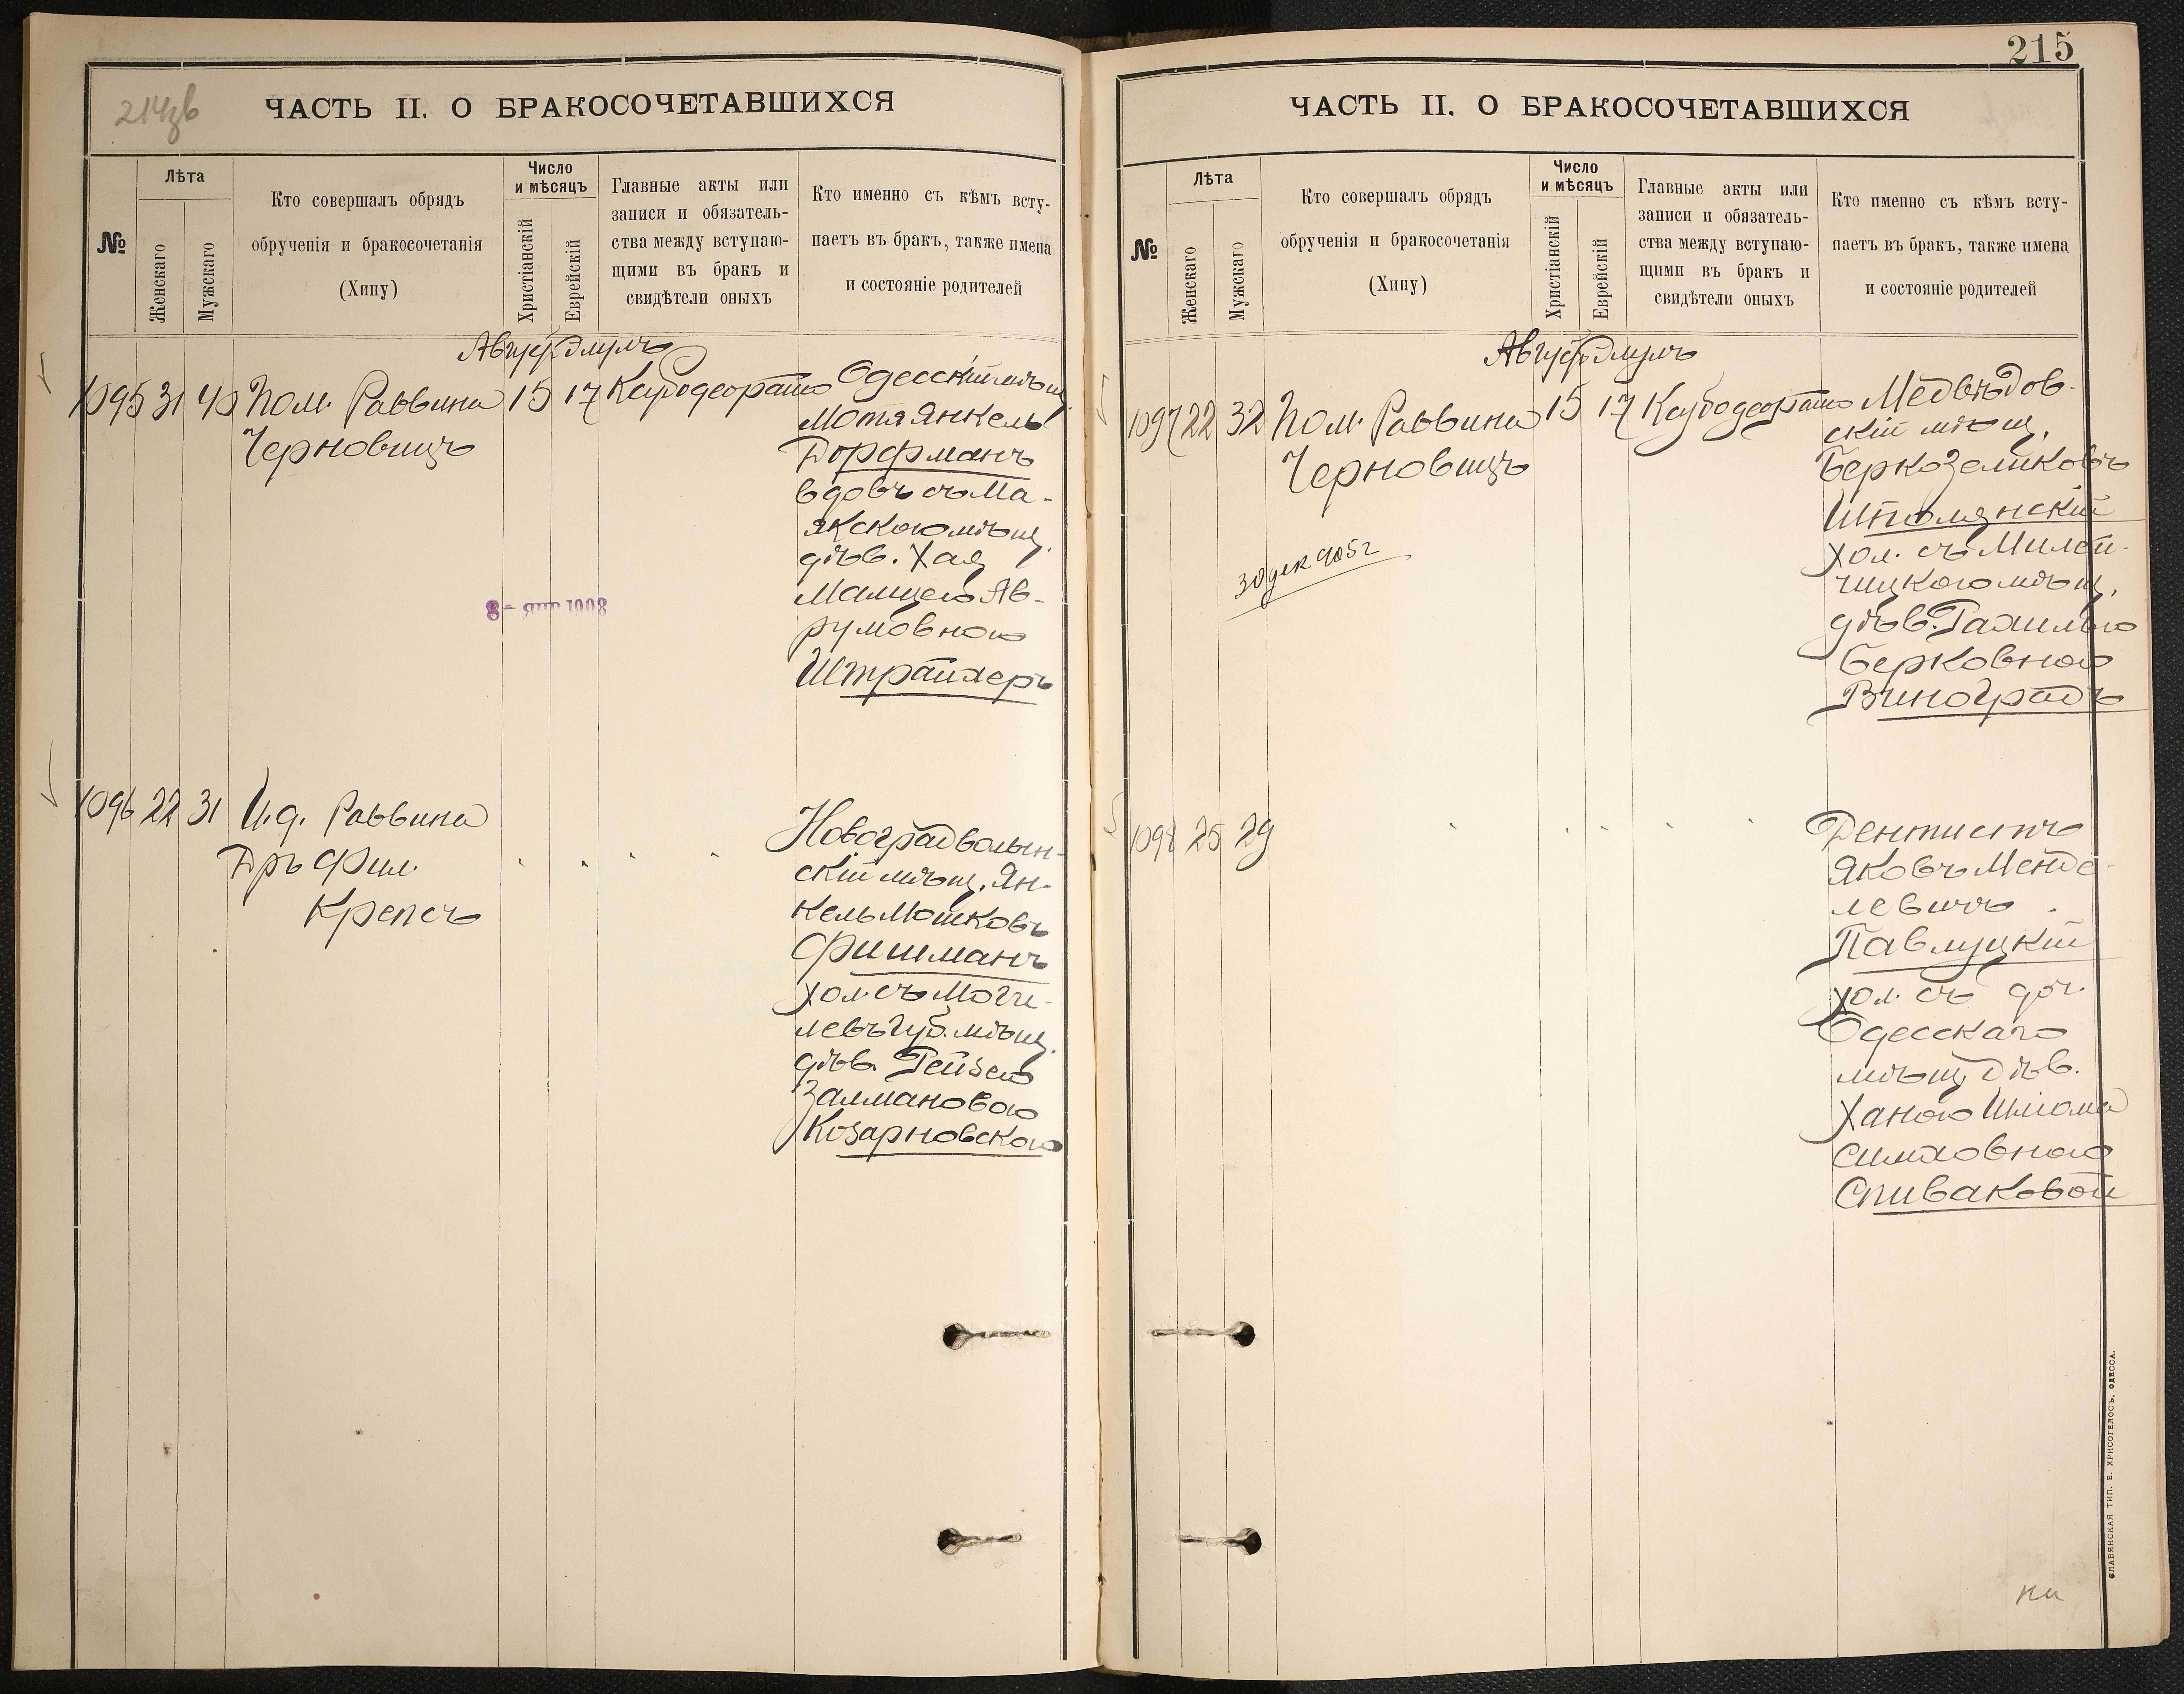 214зв
ЧАСТЬ II. О БРАКОСОЧЕТАВШИХСЯ
№
Лѣта
Женскаго
Мужскаго
Кто совершалъ обрядъ
обрученія и бракосочетанія
(Хипу)
Число
и мѣсяцъ
Христіанскій
Еврейскій
Главные акты или
записи и обязатель-
ства между вступаю-
щими въ бракъ и
свидѣтели оныхъ
Кто именно съ кѣмъ всту-
паетъ въ бракъ, также имена
и состояніе родителей
Август. Элулъ
1095 31 40 Пом. Раввина 15 17
Черновицъ
Одесскій мѣщ.
Мотя Янкель
Дорфманъ
вдовъ съ Ма-
якскою мѣщ.
дѣв. Хая
Малцею Ав-
румовною
Штрайхеръ
8 - ЯНВ 1908
1096 22 31 И.д. Раввина
Дръ Фил.
Крепсъ
Новоградволын-
скій мѣщ. Ян-
кель Мошковъ
Фишманъ
хол. съ Моги-
левъ губ. мѣщ.
дѣв. Рейзею
Залмановою
Козарновскою
215
ЧАСТЬ II. О БРАКОСОЧЕТАВШИХСЯ
№
Лѣта
Женскаго
Мужскаго
Кто совершалъ обрядъ
обрученія и бракосочетанія
(Хипу)
Число
и мѣсяцъ
Христіанскій
Еврейскій
Главные акты или
записи и обязатель-
ства между вступаю-
щими въ бракъ и
свидѣтели оныхъ
Кто именно съ кѣмъ всту-
паетъ въ бракъ, также имена
и состояніе родителей
Август. Элулъ
1097 22 32 Пом. Раввина 15 17
Черновицъ
30 дек 905 г
Медвѣдов-
скій мѣщ.
Берко Зеликовъ
Шполянскій
хол. съ Милей-
чицкою мѣщ.
дѣв. Рахилью
Берковною
Виноградъ
1098 25 29
Дентистъ
Яковъ Менде-
левичъ
Павлуцкій
хол. съ доч.
Одесскаго
мѣщ. дѣв.
Ханою Шліома
Симховною
Спиваковой
СЛАВЯНСКАЯ ТИП. Е. ХРИСОГЕЛОСЪ, ОДЕССА.